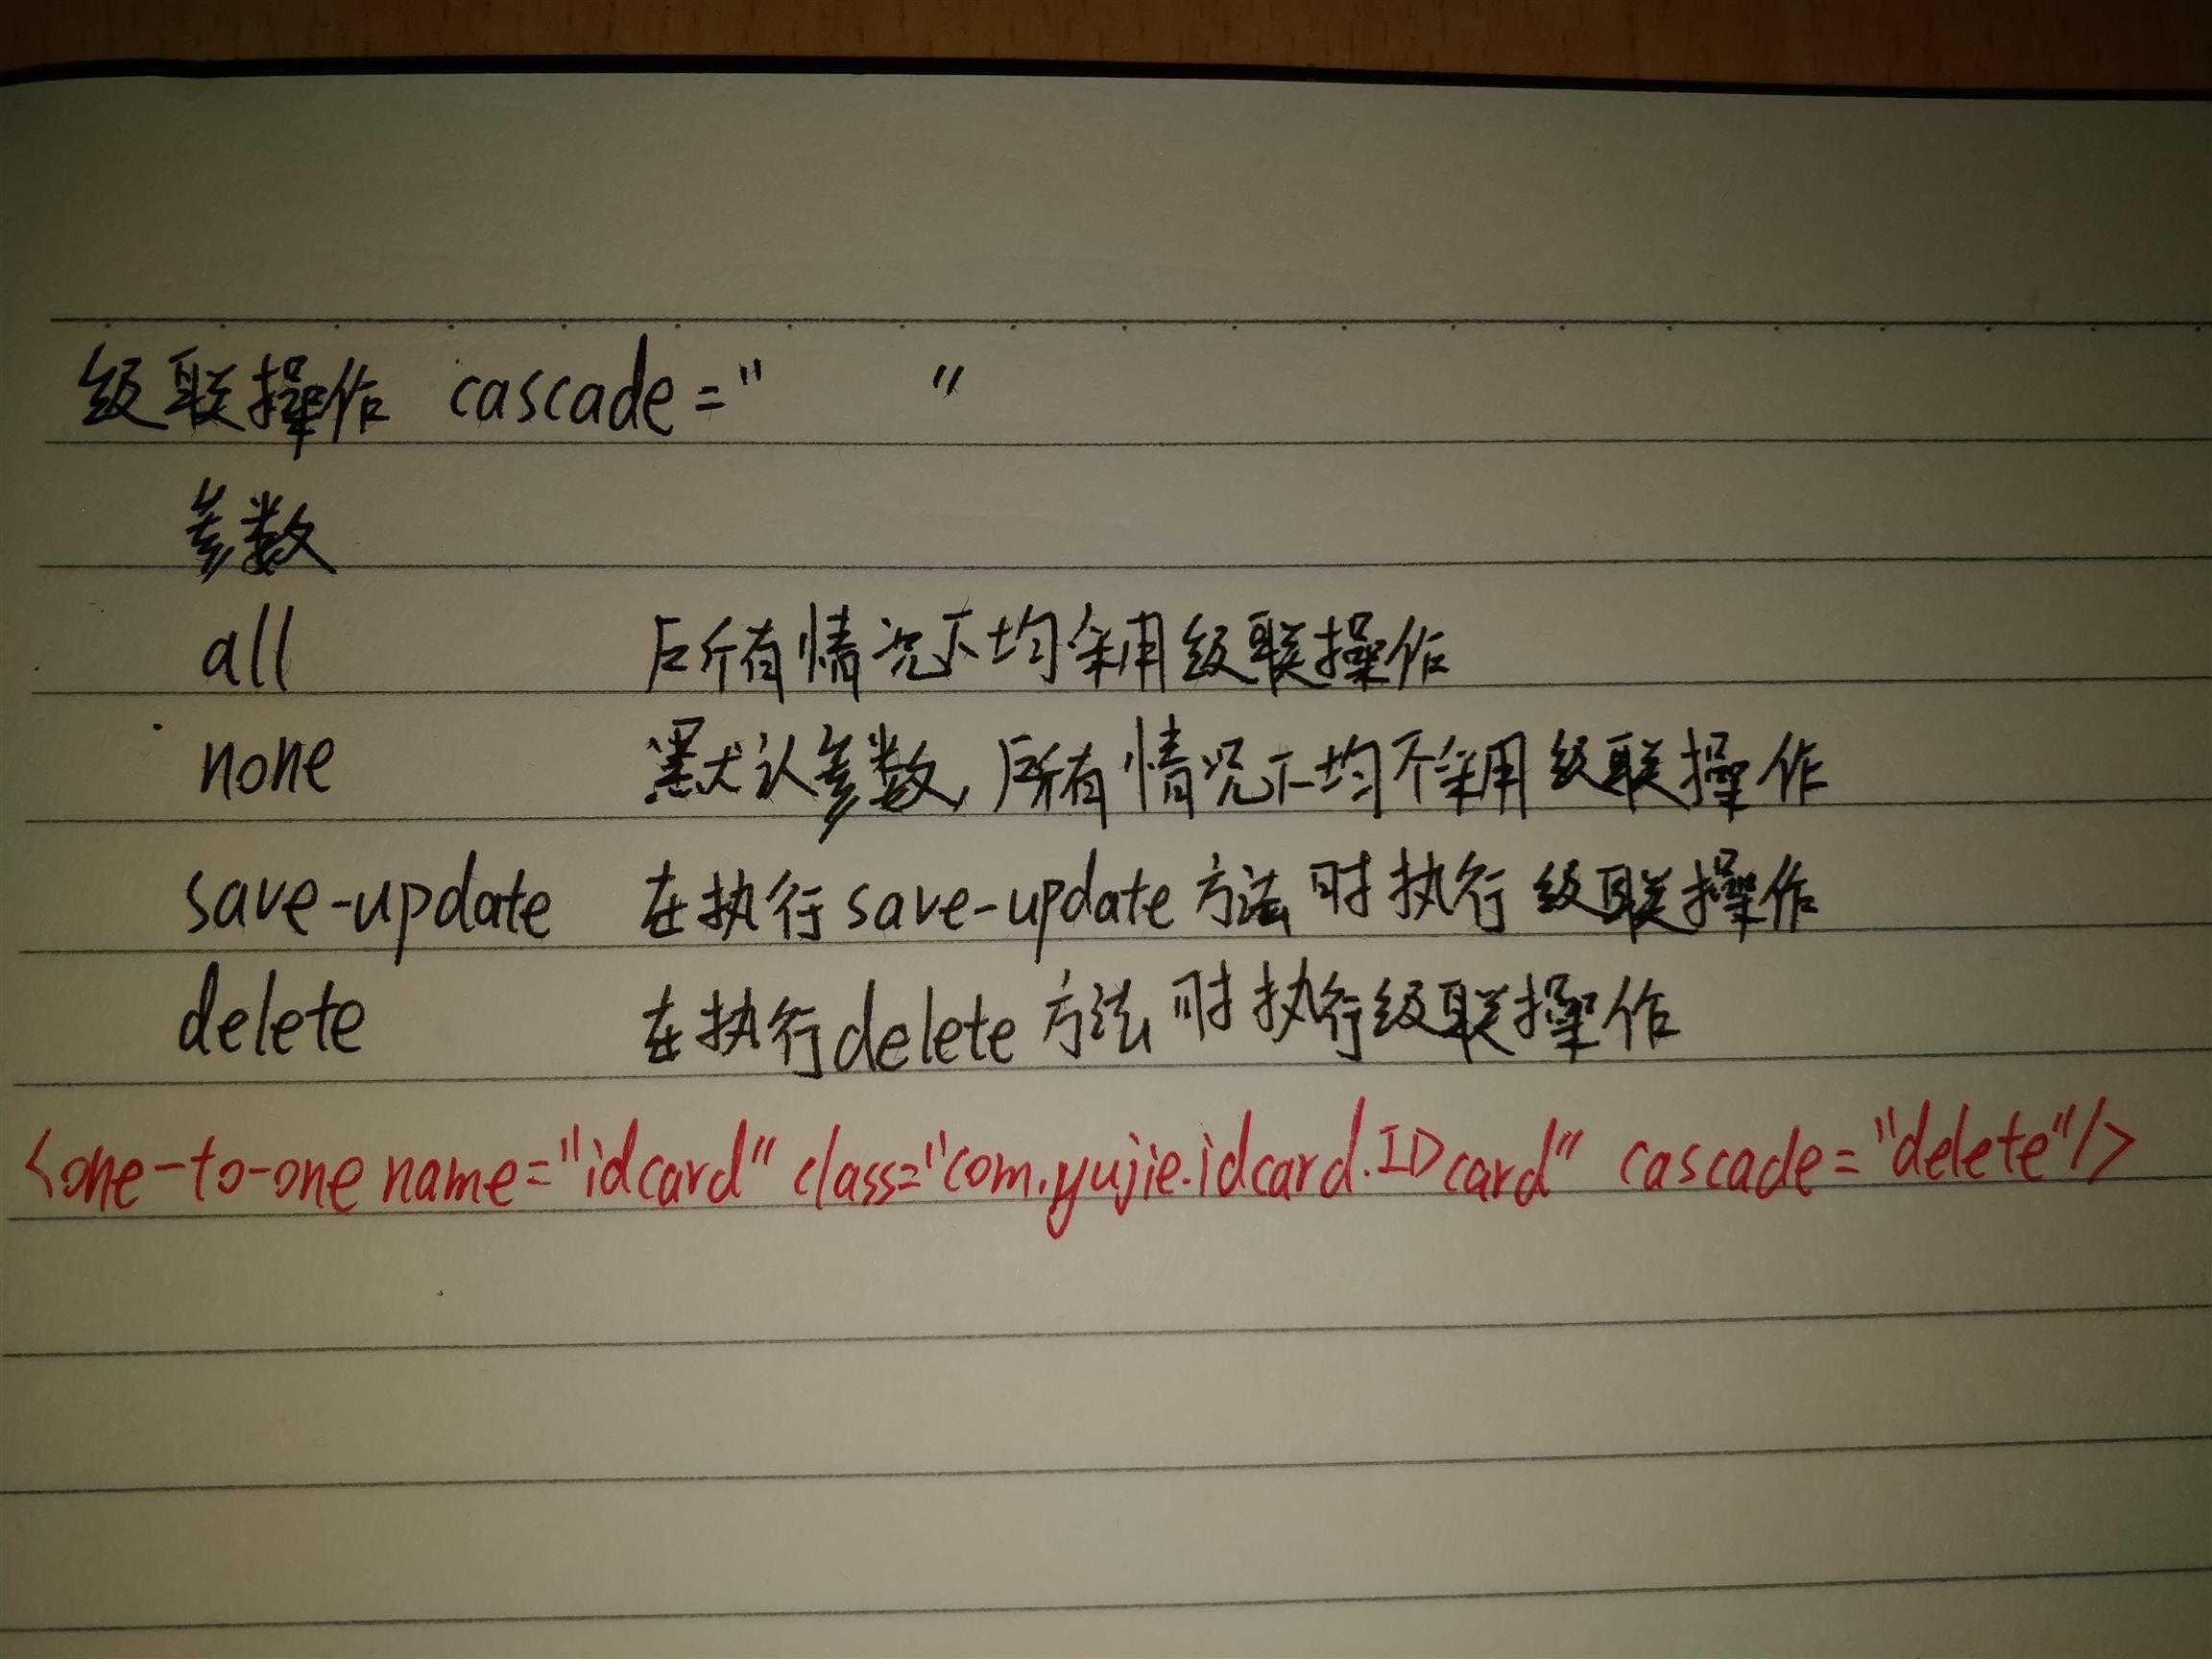 级联操作 cascade="        "
参数
all 所有情况下均采用级联操作
none 默认参数,所有情况下均不采用级联操作
save-update 在执行save-update方法时执行级联操作
delete 在执行delete方法时执行级联操作
<one-to-one name="idcard" class="com.yujie.idcard.IDcard" cascade="delete"/>